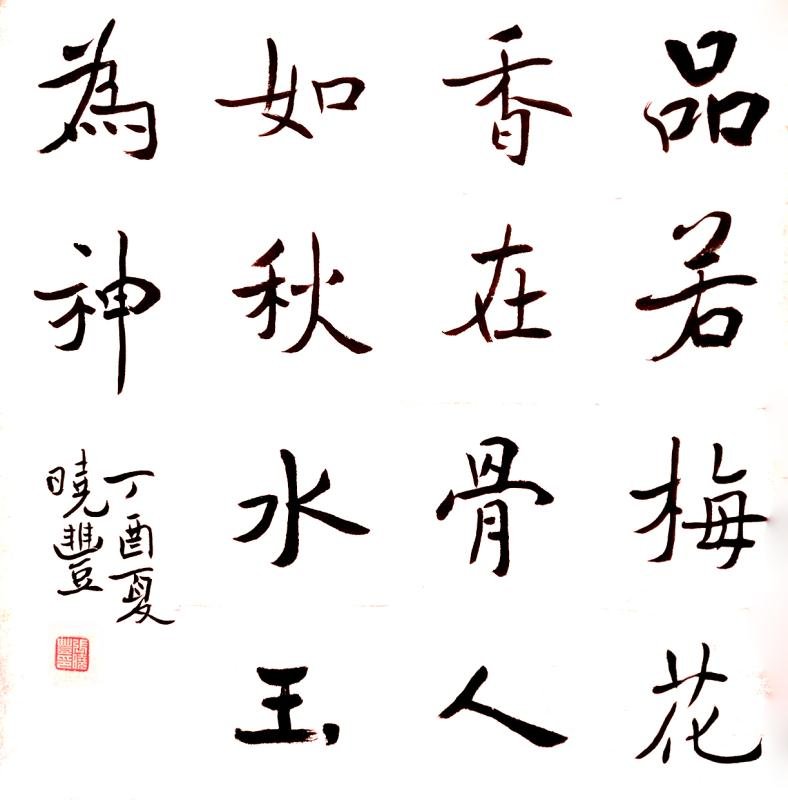 品若梅花
香在骨人
如秋水玉
為神
丁酉夏
曉豐